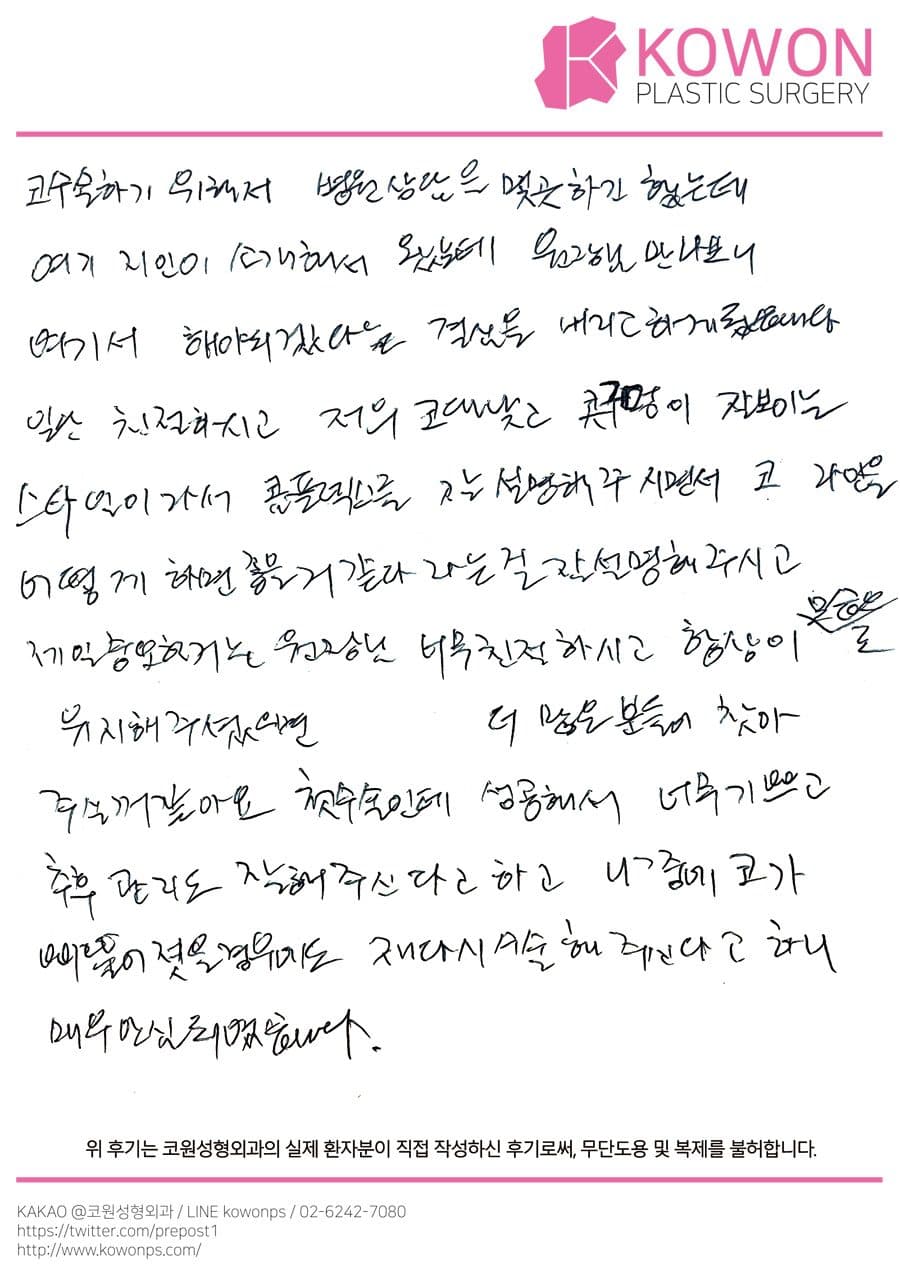 KOWON
PLASTIC SURGERY
코수술하기 위해서 병원상담은 몇곳하긴 했는데
여기 지인이 소개해서 왔는데 원장님 만나보니
여기서 해야되겠다는 결심을 내리고하게
일단 친절하시고 저의 코대낮고 콧구멍이 잘보이는
스타일이라서 콤플렉스를 잘 설명해주시면서 코 라인을
어떻게 하면 좋을거 같다 라는걸 잘설명해주시고
제일중요한거는 원장님 너무친절하시고 항상이 을
유지해주셨으면 더 많은 분들이 찾아
주실꺼같아요 첫수술인데 성공해서 너무기쁘고
추후 관리도 잘해주신다고 하고 나중에 코가
졌을경우에도 재다시시술해 주신다고 하니
매우안심되었습니다.
위 후기는 코원성형외과의 실제 환자분이 직접 작성하신 후기로써, 무단도용 및 복제를 불허합니다.
KAKAO @코원성형외과 / LINE kowonps / 02-6242-7080
https://twitter.com/prepost1
http://www.kowonps.com/